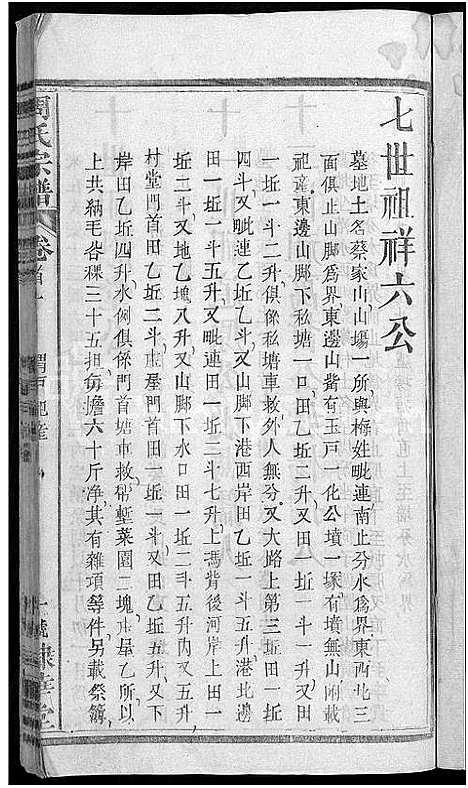 七世祖祥六公
墓地土名蔡家山山場一所與梅姓毗連南止分水為界東西北三
面俱止山脚為界東邊山嘴有玉戸一化公墳一塚有墳無山附載
祀産東邊山脚下私塘一口田乙坵二升又田一坵一斗一升又田
一坵一斗二升俱係私塘車救外人無分又大路上第三坵田一坵
四斗又毗連乙坵乙斗又山場下港西岸田乙坵一斗五升港北邊
田一坵一斗五升又毗連田一坵二斗七升上馮背後河岸上田一
坵二斗又地乙塊八升又山脚下水口田一坵二斗五升又田下
村堂門首田乙坵二斗庄屋門首田一坵一斗又田乙坵五升又下
岸田乙坵四升水例俱係門首塘車救帶塹菜園二塊庄屋乙所以
上共納毛谷粿三十五担每擔六十斤净其有雜項等件另載祭簿
周氏宗譜
卷首